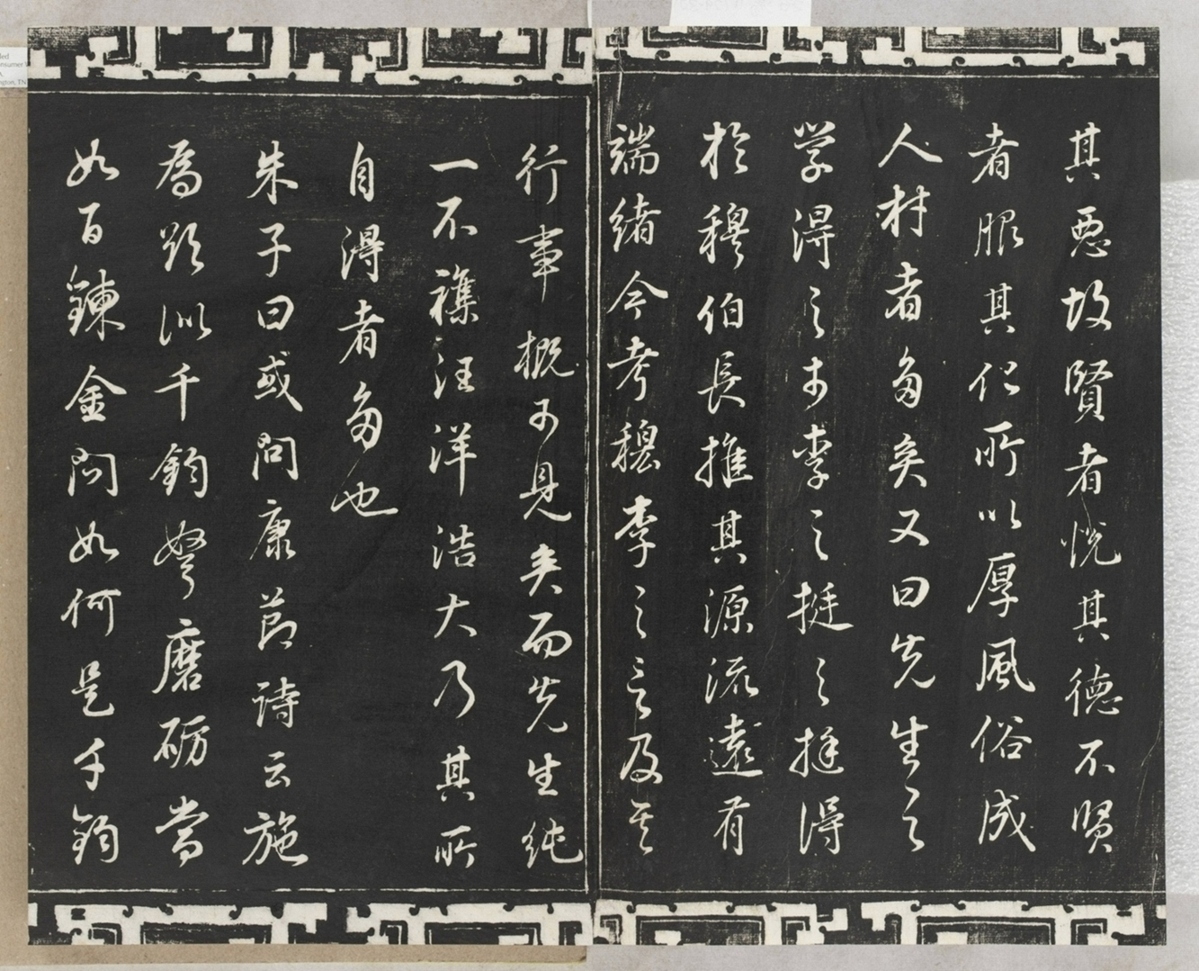 其惡故賢者悅其德不賢
者服其化所以厚風俗成
人材者多矣又曰先生之
學得之於李之挺之挺得
於穆伯長推其源流遠有
端緒今考穆李之言及其
行事概可見矣而先生純
一不襍汪洋浩大乃其所
自得者多也
朱子曰或問康節詩云施
為欲似千鈞弩磨礪當
如百鍊金問如何是千鈞